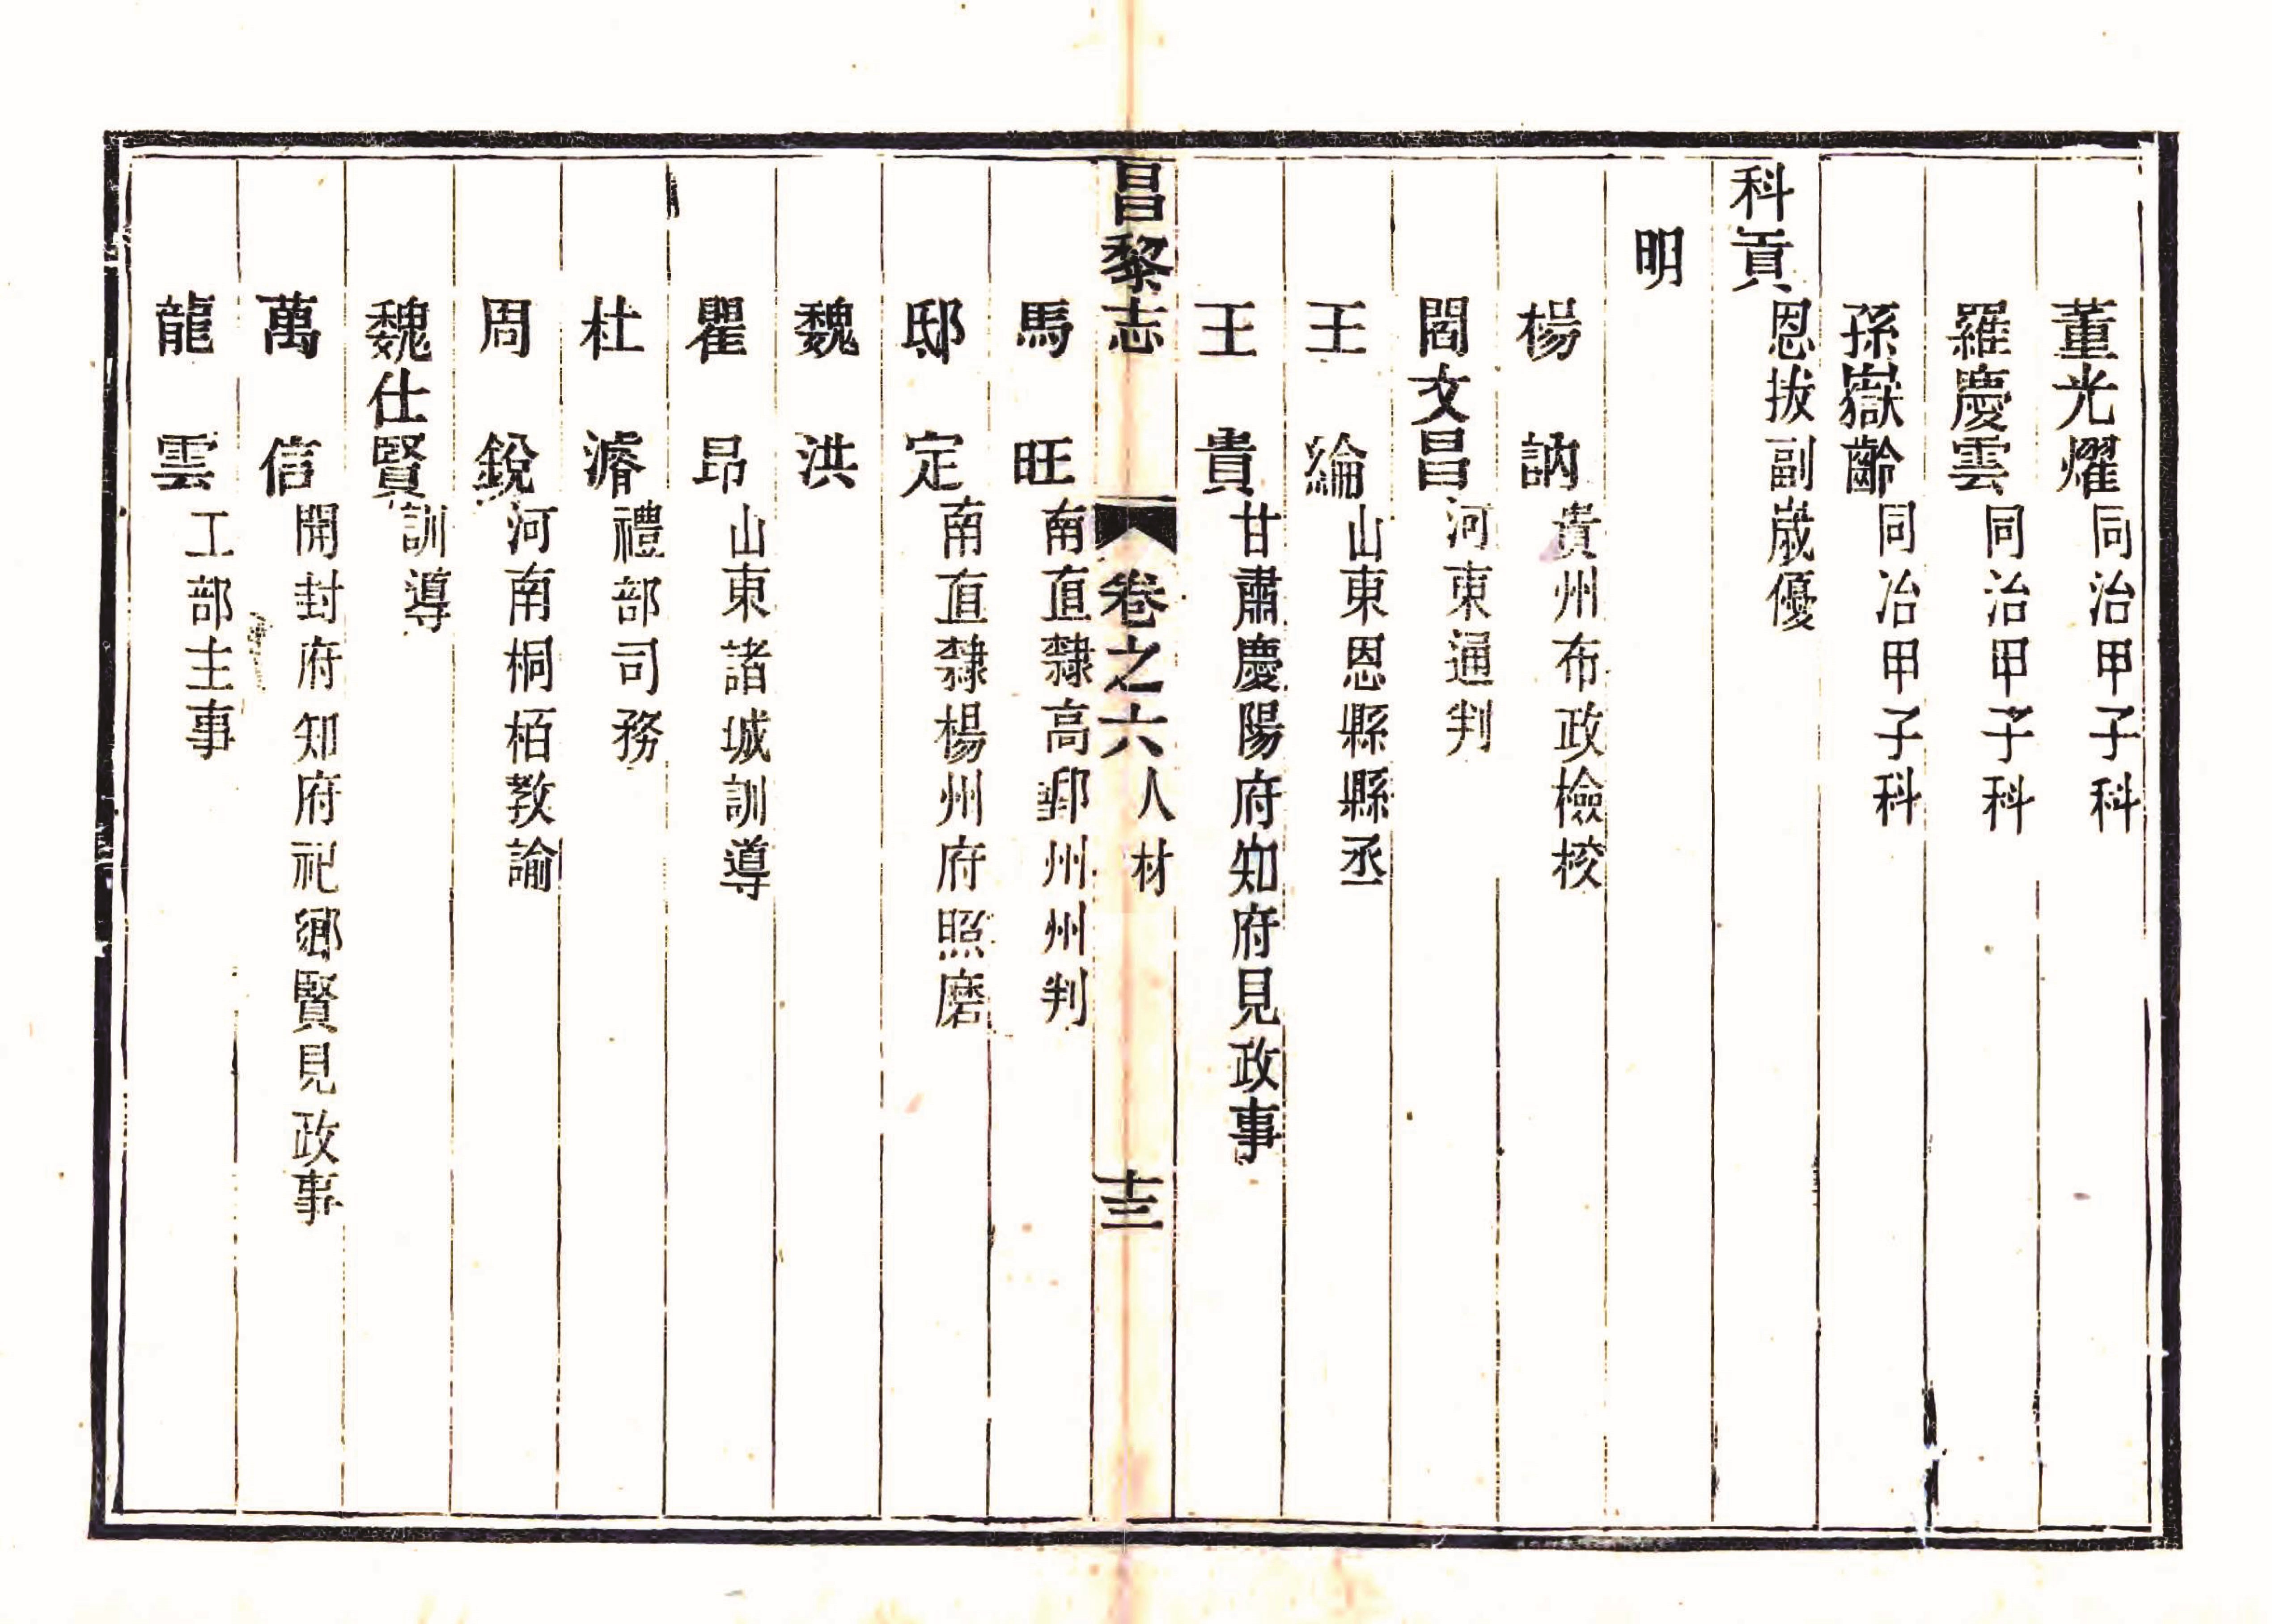 董光燿同治甲子科
羅慶雲同治甲子科
孫嶽齡同治甲子科
科貢恩拔副歲優
明
楊訥貴州布政檢校
閻文昌河東通判
王綸山東恩縣縣丞
王貴甘肅慶陽府知府見政事
昌黎志 卷之六人材 十三
馬旺南直隸高郵州州判
邸定南直隸楊州府照磨
魏洪
瞿昂山東諸城訓導
杜濬禮部司務
周銳河南桐栢教諭
魏仕賢訓導
萬信開封府知府祀鄉賢見政事
龍雲工部主事